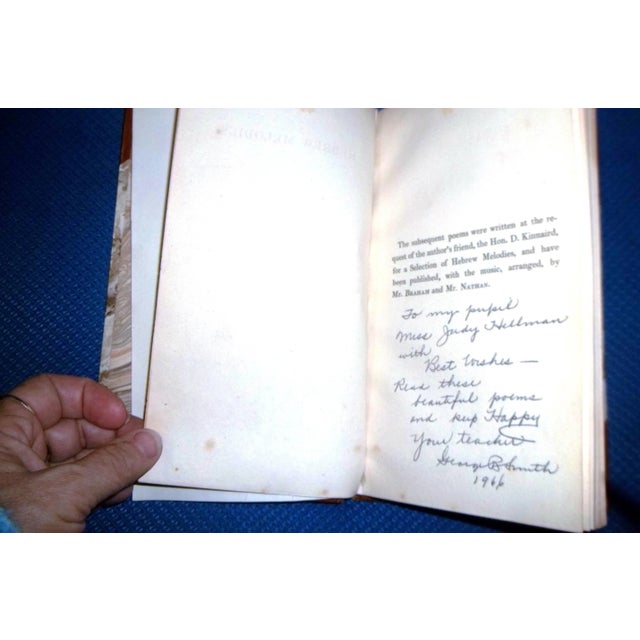 The subsequent poems were written at the re-
quest of the author's friend, the Hon. D. Kinnaird,
for a Selection of Hebrew Melodies, and have
been published, with the music, arranged, by
Mr. BRAHAM and Mr. NATHAN.
To my pupil
Miss Judy Hellman
with
Best Wishes —
Read these
beautiful poems
and keep Happy
Your teacher
George B Smith
1966